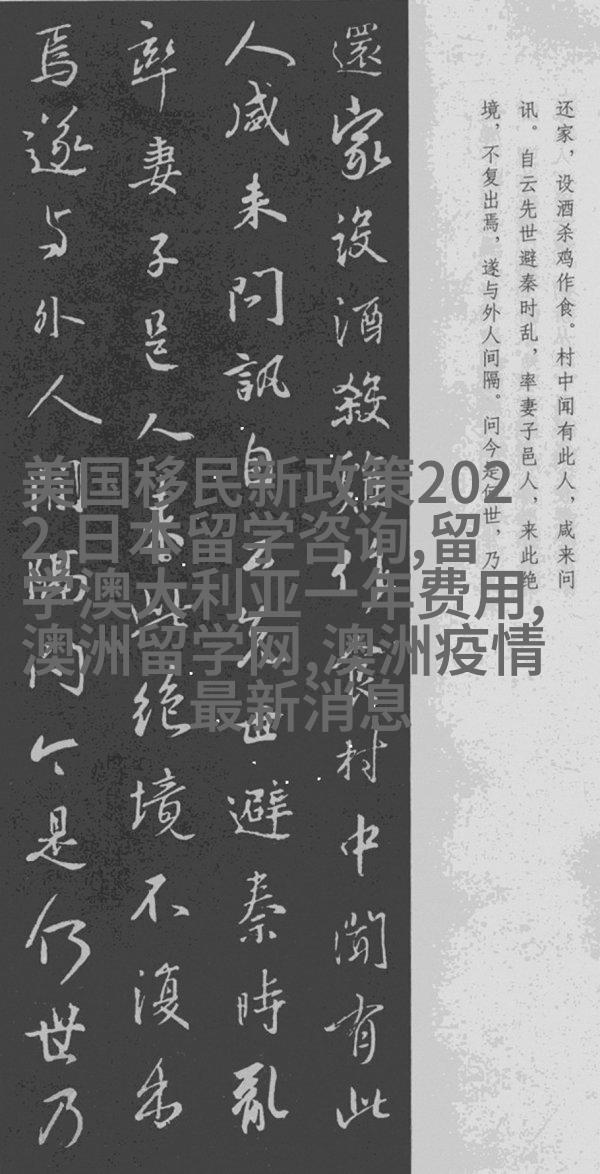 还家，设酒杀鸡作食。村中闻有此人，咸来问
讯。自云先世避秦时乱，率妻子邑人，来此绝
境，不复出焉，遂与外人间隔。问今是何世，乃
還家設酒殺鷄作食村中聞有此
人咸来問訊自云先世避秦時亂
率妻子邑人来此絶境不復出
焉遂与外人間隔問今是何世乃
美国移民新政策202
2,日本留学咨询,留
学澳大利亚一年费用,
澳洲留学网,澳洲疫情
最新消息